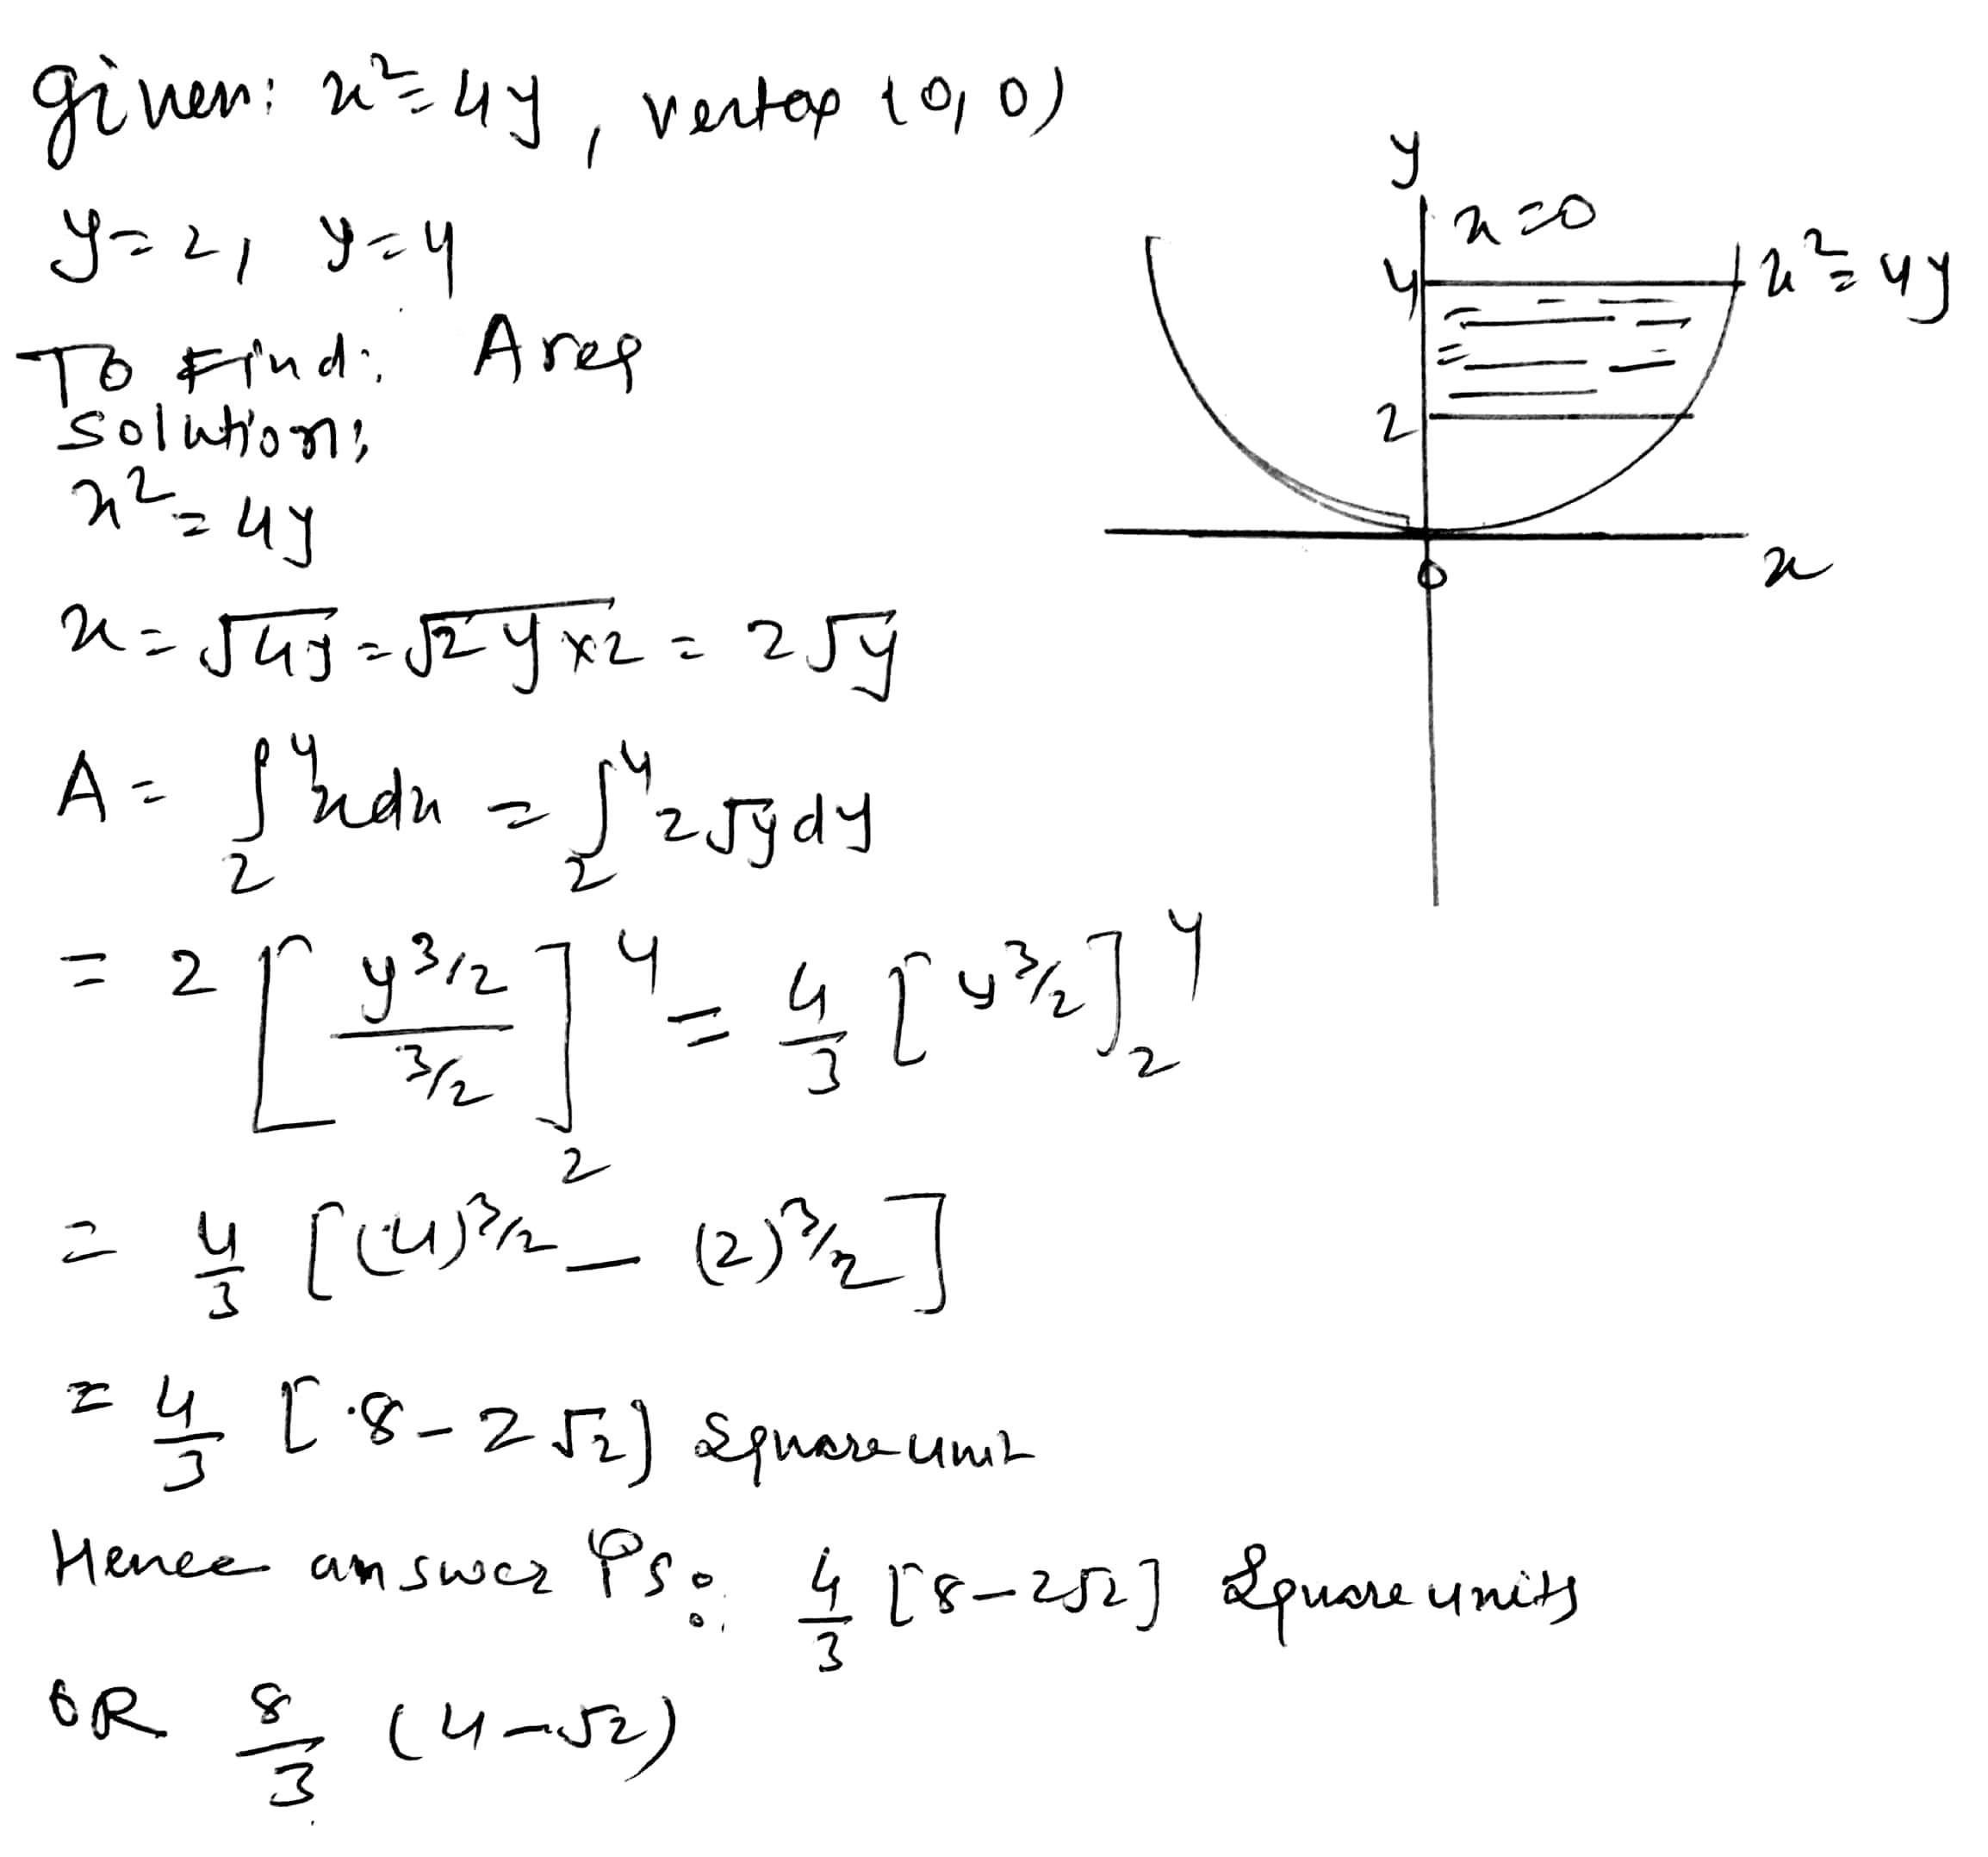 Given: x² = 4y, vertex (0, 0)
y = 2, y = 4
To Find: Area
Solution:
x² = 4y
x = √4y = √2y×2 = 2√y
A = ∫₂⁴ x dx = ∫₂⁴ 2√y dy
= 2 [ y^3/2 / 3/2 ]₂⁴ = 4/3 [y^3/2]₂⁴
= 4/3 [(4)^3/2 - (2)^3/2]
= 4/3 [8 - 2√2] square unit
Hence answer is: 4/3 [8 - 2√2] square units
OR 8/3 (4 - √2)
y
x = 0
4
x² = 4y
2
0
x